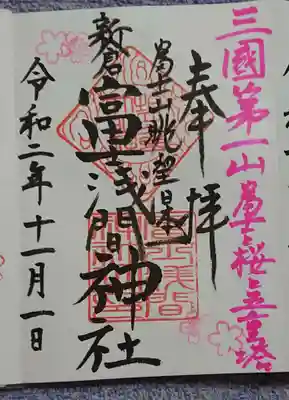 三國第一山冨士と桜と五重塔
奉拝
冨士山眺望日本一
新倉冨士浅間神社
令和二年十一月一日